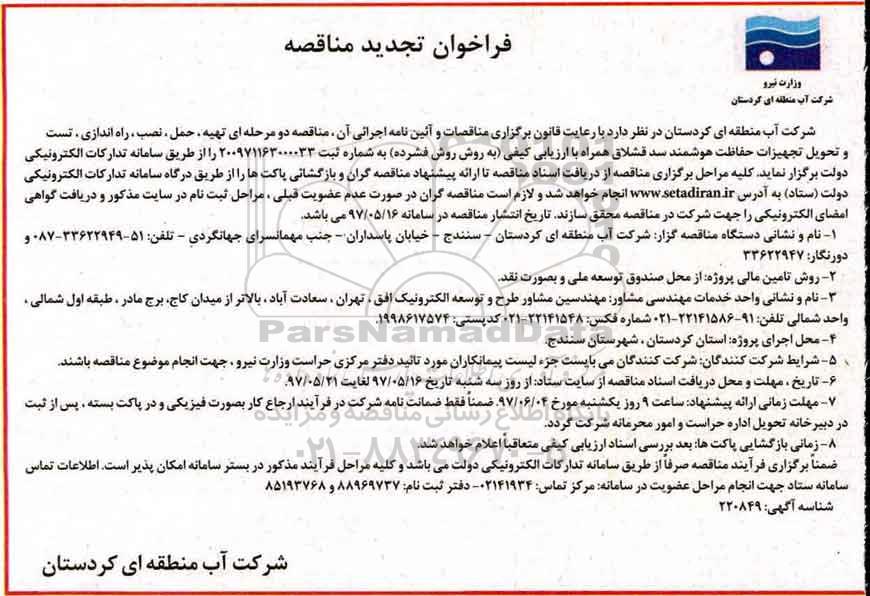 فراخوان تجدید مناقصه
وزارت نیرو
شرکت آب منطقه ای کردستان
شرکت آب منطقه ای کردستان در نظر دارد با رعایت قانون برگزاری مناقصات و آئین نامه اجرائی آن ، مناقصه دو مرحله ای تهیه ، حمل ، نصب ، راه اندازی ، تست
و تحویل تجهیزات حفاظت هوشمند سد قشلاق همراه با ارزیابی کیفی (به روش روش فشرده) به شماره ثبت ۲۰۰۹۷۱۱۶۳۰۰۰۰۳۳ را از طریق سامانه تدارکات الکترونیکی
دولت برگزار نماید. کلیه مراحل برگزاری مناقصه از دریافت اسناد مناقصه تا ارائه پیشنهاد مناقصه گران و بازگشائی پاکت ها را از طریق درگاه سامانه تدارکات الکترونیکی
دولت (ستاد) به آدرس www.setadiran.ir انجام خواهد شد و لازم است مناقصه گران در صورت عدم عضویت قبلی ، مراحل ثبت نام در سایت مذکور و دریافت گواهی
امضای الکترونیکی را جهت شرکت در مناقصه محقق سازند. تاریخ انتشار مناقصه در سامانه ۹۷/۰۵/۱۶ می باشد.
۱- نام و نشانی دستگاه مناقصه گزار: شرکت آب منطقه ای کردستان - سنندج - خیابان پاسداران - جنب مهمانسرای جهانگردی - تلفن: ۵۱-۳۳۶۲۲۹۴۹-۰۸۷ و
دورنگار: ۳۳۶۲۲۹۴۷
۲- روش تامین مالی پروژه: از محل صندوق توسعه ملی و بصورت نقد.
۳- نام و نشانی واحد خدمات مهندسی مشاور: مهندسین مشاور طرح و توسعه الکترونیک افق ، تهران ، سعادت آباد ، بالاتر از میدان کاج، برج مادر ، طبقه اول شمالی ،
واحد شمالی تلفن: ۹۱-۲۲۱۴۱۵۸۶-۰۲۱ شماره فکس: ۲۲۱۴۱۵۴۸-۰۲۱ کدپستی: ۱۹۹۸۶۱۷۵۷۴
۴- محل اجرای پروژه: استان کردستان ، شهرستان سنندج.
۵- شرایط شرکت کنندگان: شرکت کنندگان می بایست جزء لیست پیمانکاران مورد تائید دفتر مرکزی حراست وزارت نیرو ، جهت انجام موضوع مناقصه باشند.
۶- تاریخ ، مهلت و محل دریافت اسناد مناقصه از سایت ستاد: از روز سه شنبه تاریخ ۹۷/۰۵/۱۶ لغایت ۹۷/۰۵/۲۱.
۷- مهلت زمانی ارائه پیشنهاد: ساعت ۹ روز یکشنبه مورخ ۹۷/۰۶/۰۴. ضمناً فقط ضمانت نامه شرکت در فرآیند ارجاع کار بصورت فیزیکی و در پاکت بسته ، پس از ثبت
در دبیرخانه تحویل اداره حراست و امور محرمانه شرکت گردد.
۸- زمانی بازگشایی پاکت ها: بعد بررسی اسناد ارزیابی کیفی متعاقباً اعلام خواهد شد.
ضمناً برگزاری فرآیند مناقصه صرفاً از طریق سامانه تدارکات الکترونیکی دولت می باشد و کلیه مراحل فرآیند مذکور در بستر سامانه امکان پذیر است. اطلاعات تماس
سامانه ستاد جهت انجام مراحل عضویت در سامانه: مرکز تماس: ۰۲۱۴۱۹۳۴- دفتر ثبت نام: ۸۸۹۶۹۷۳۷ و ۸۵۱۹۳۷۶۸
شناسه آگهی: ۲۲۰۸۴۹
شرکت آب منطقه ای کردستان
ParsNamadData
پایگاه اطلاع رسانی مناقصه و مزایده
۰۲۱-۸۸۳۴۹۶۷۰-۵